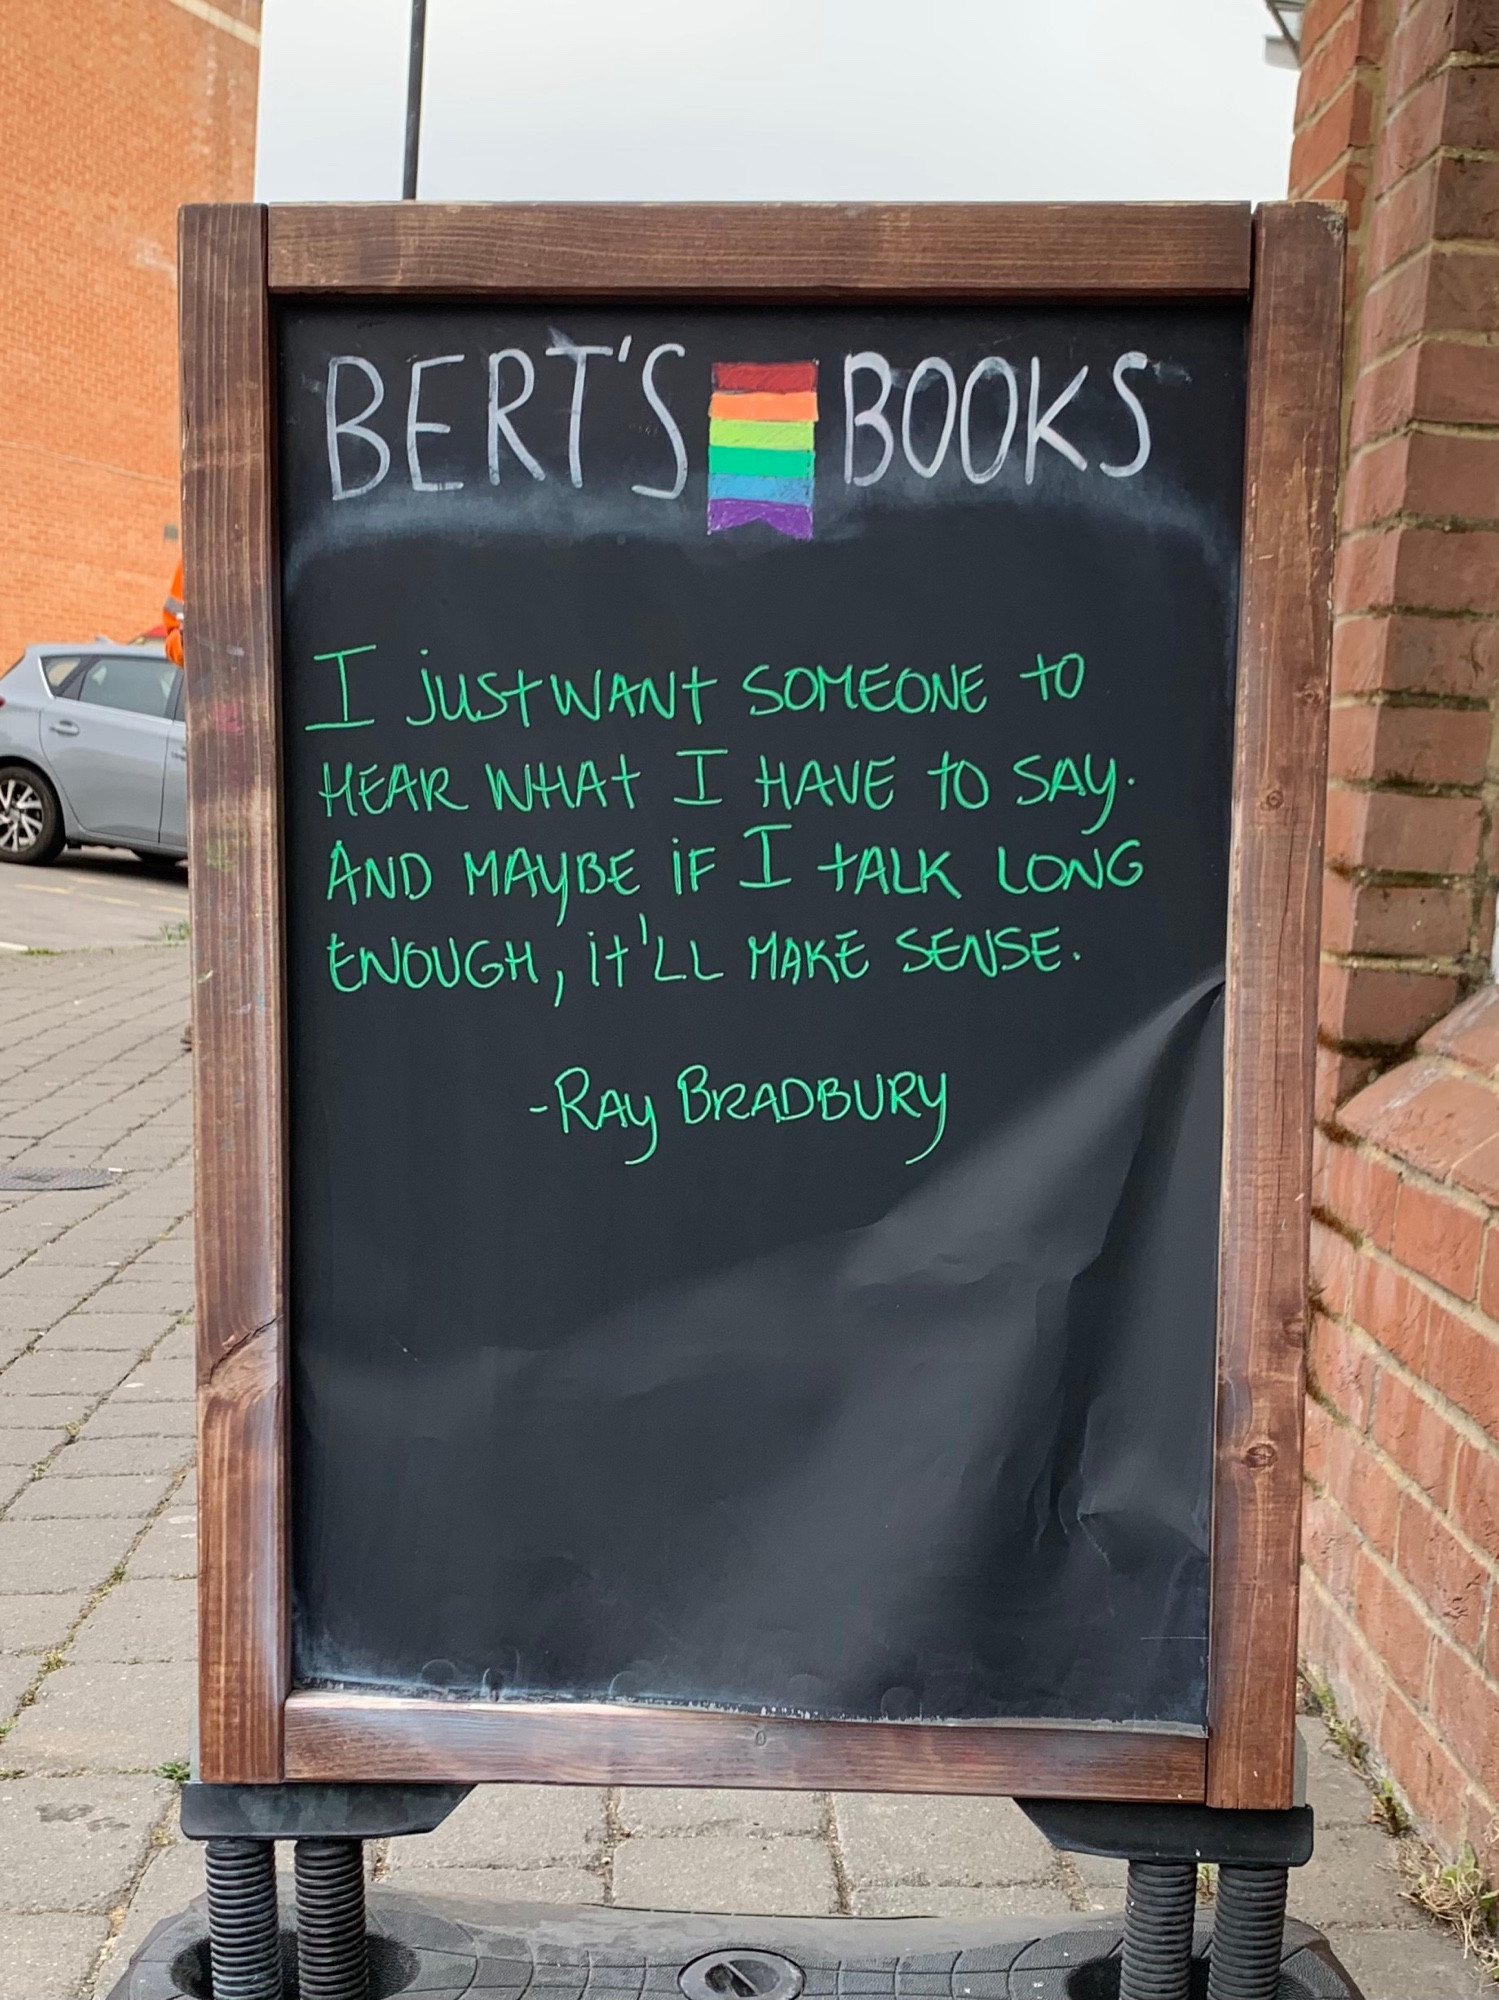 BERT'S BOOKS
I JUST WANT SOMEONE TO
HEAR WHAT I HAVE TO SAY.
AND MAYBE IF I TALK LONG
ENOUGH, IT'LL MAKE SENSE.
-RAY BRADBURY